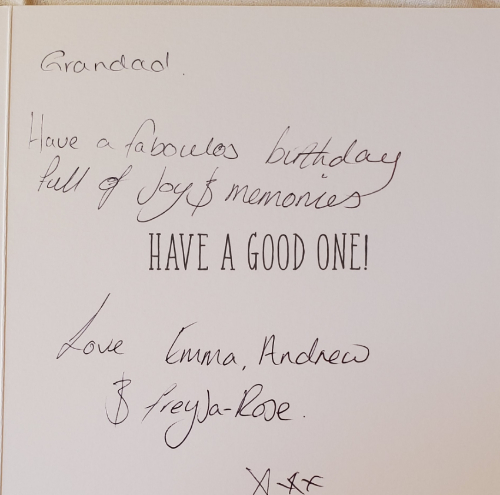 Grandad.
Have a faboulos birthday
full of Joy & memories
HAVE A GOOD ONE!
Love Emma, Andrew
& Freyja-Rose.
xxx